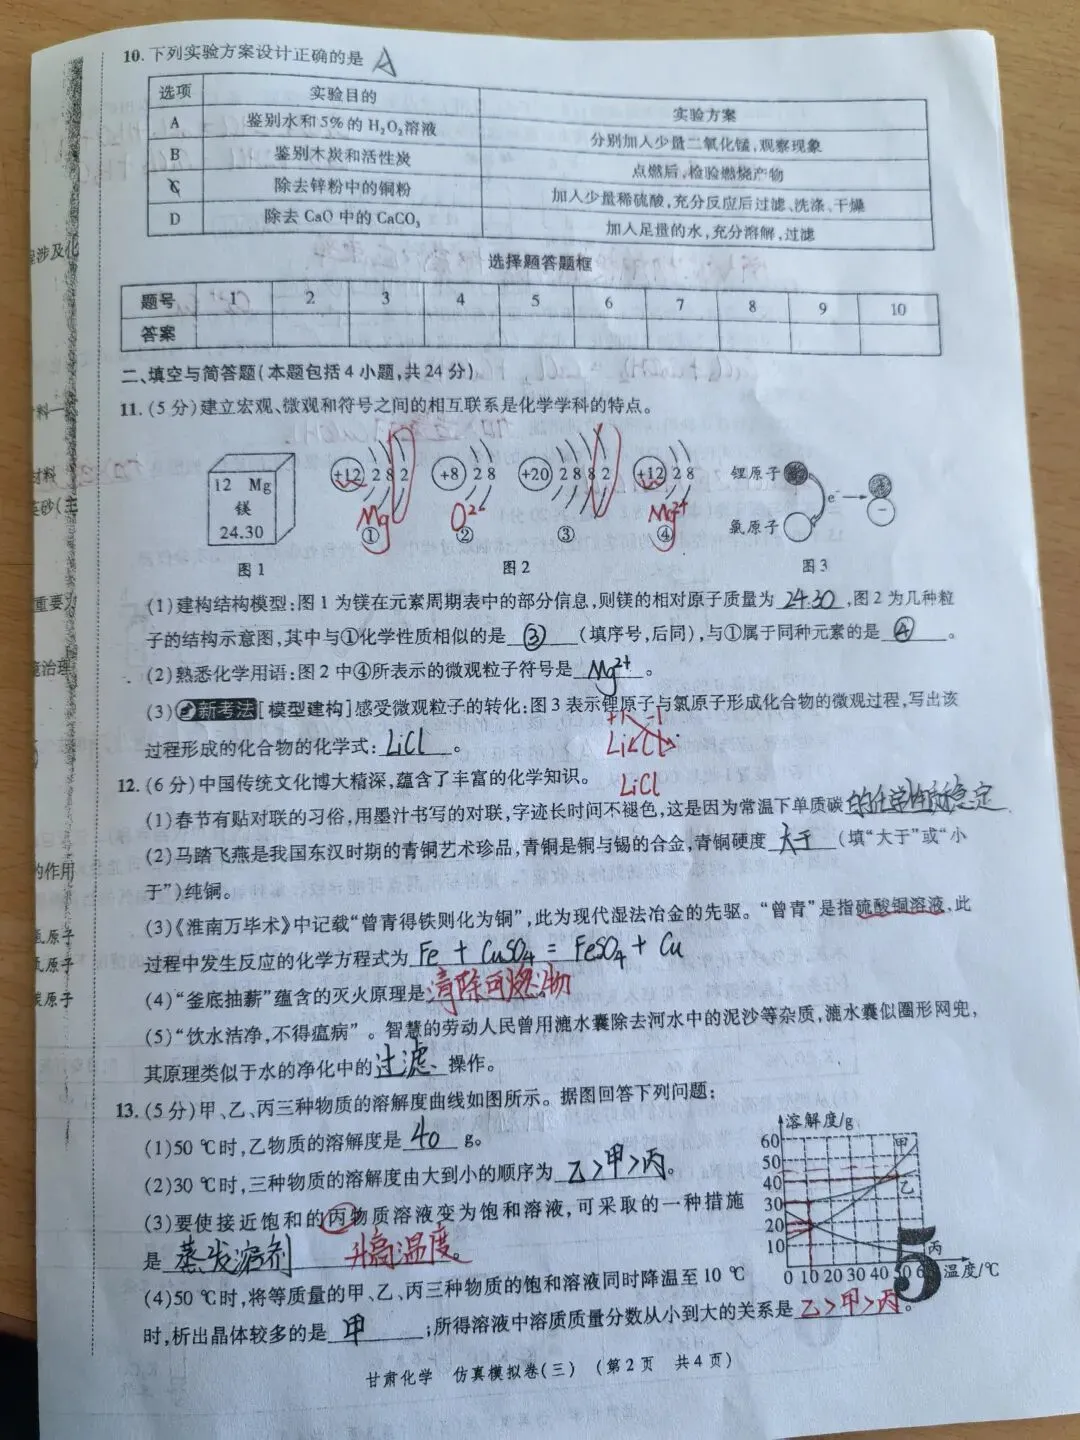 10. 下列实验方案设计正确的是 A
选项 实验目的 实验方案
A 鉴别水和5%的H₂O₂溶液 分别加入少量二氧化锰,观察现象
B 鉴别木炭和活性炭 点燃后,检验燃烧产物
C 除去锌粉中的铜粉 加入少量稀硫酸,充分反应后过滤、洗涤、干燥
D 除去CaO中的CaCO₃ 加入足量的水,充分溶解,过滤
选择题答题框
题号 1 2 3 4 5 6 7 8 9 10
答案
二、填空与简答题(本题包括4小题,共24分)
11. (5分)建立宏观、微观和符号之间的相互联系是化学学科的特点。
12 Mg
镁
24.30
图1
+12 2 8 2
+8 2 8
+20 2 8 8 2
+12 2 8
Mg O²⁻ Mg²⁺
① ② ③ ④
图2
锂原子
e⁻
氯原子
−
图3
(1)建构结构模型:图1为镁在元素周期表中的部分信息,则镁的相对原子质量为 24.30 ,图2为几种粒
子的结构示意图,其中与①化学性质相似的是 ③ (填序号,后同),与①属于同种元素的是 ④ 。
(2)熟悉化学用语:图2中④所表示的微观粒子符号是 Mg²⁺ 。
(3)新考法[模型建构]感受微观粒子的转化:图3表示锂原子与氯原子形成化合物的微观过程,写出该
+1 -1
过程形成的化合物的化学式: LiCl 。
Li Cl
LiCl
12. (6分)中国传统文化博大精深,蕴含了丰富的化学知识。
(1)春节有贴对联的习俗,用墨汁书写的对联,字迹长时间不褪色,这是因为常温下单质碳 的化学性质稳定
(2)马踏飞燕是我国东汉时期的青铜艺术珍品,青铜是铜与锡的合金,青铜硬度 大于 (填“大于”或“小
于”)纯铜。
(3)《淮南万毕术》中记载“曾青得铁则化为铜”,此为现代湿法冶金的先驱。“曾青”是指硫酸铜溶液,此
过程中发生反应的化学方程式为 Fe + CuSO₄ = FeSO₄ + Cu
(4)“釜底抽薪”蕴含的灭火原理是 清除可燃物 。
(5)“饮水洁净,不得瘟病”。智慧的劳动人民曾用漉水囊除去河水中的泥沙等杂质,漉水囊似圈形网兜,
其原理类似于水的净化中的 过滤 操作。
13. (5分)甲、乙、丙三种物质的溶解度曲线如图所示。据图回答下列问题:
(1)50 ℃时,乙物质的溶解度是 40 g。
(2)30 ℃时,三种物质的溶解度由大到小的顺序为 乙>甲>丙 。
(3)要使接近饱和的丙物质溶液变为饱和溶液,可采取的一种措施
是 蒸发溶剂 升高温度 。
(4)50 ℃时,将等质量的甲、乙、丙三种物质的饱和溶液同时降温至10 ℃
时,析出晶体较多的是 甲 ;所得溶液中溶质质量分数从小到大的关系是 乙>甲>丙 。
溶解度/g
60
50
40
30
20
10
甲
乙
丙
0 10 20 30 40 50 6 温度/℃
5
甘肃化学 仿真模拟卷(三) (第2页 共4页)
程涉及化
材料
重要
境治理
的作用
氢原子
氧原子
碳原子